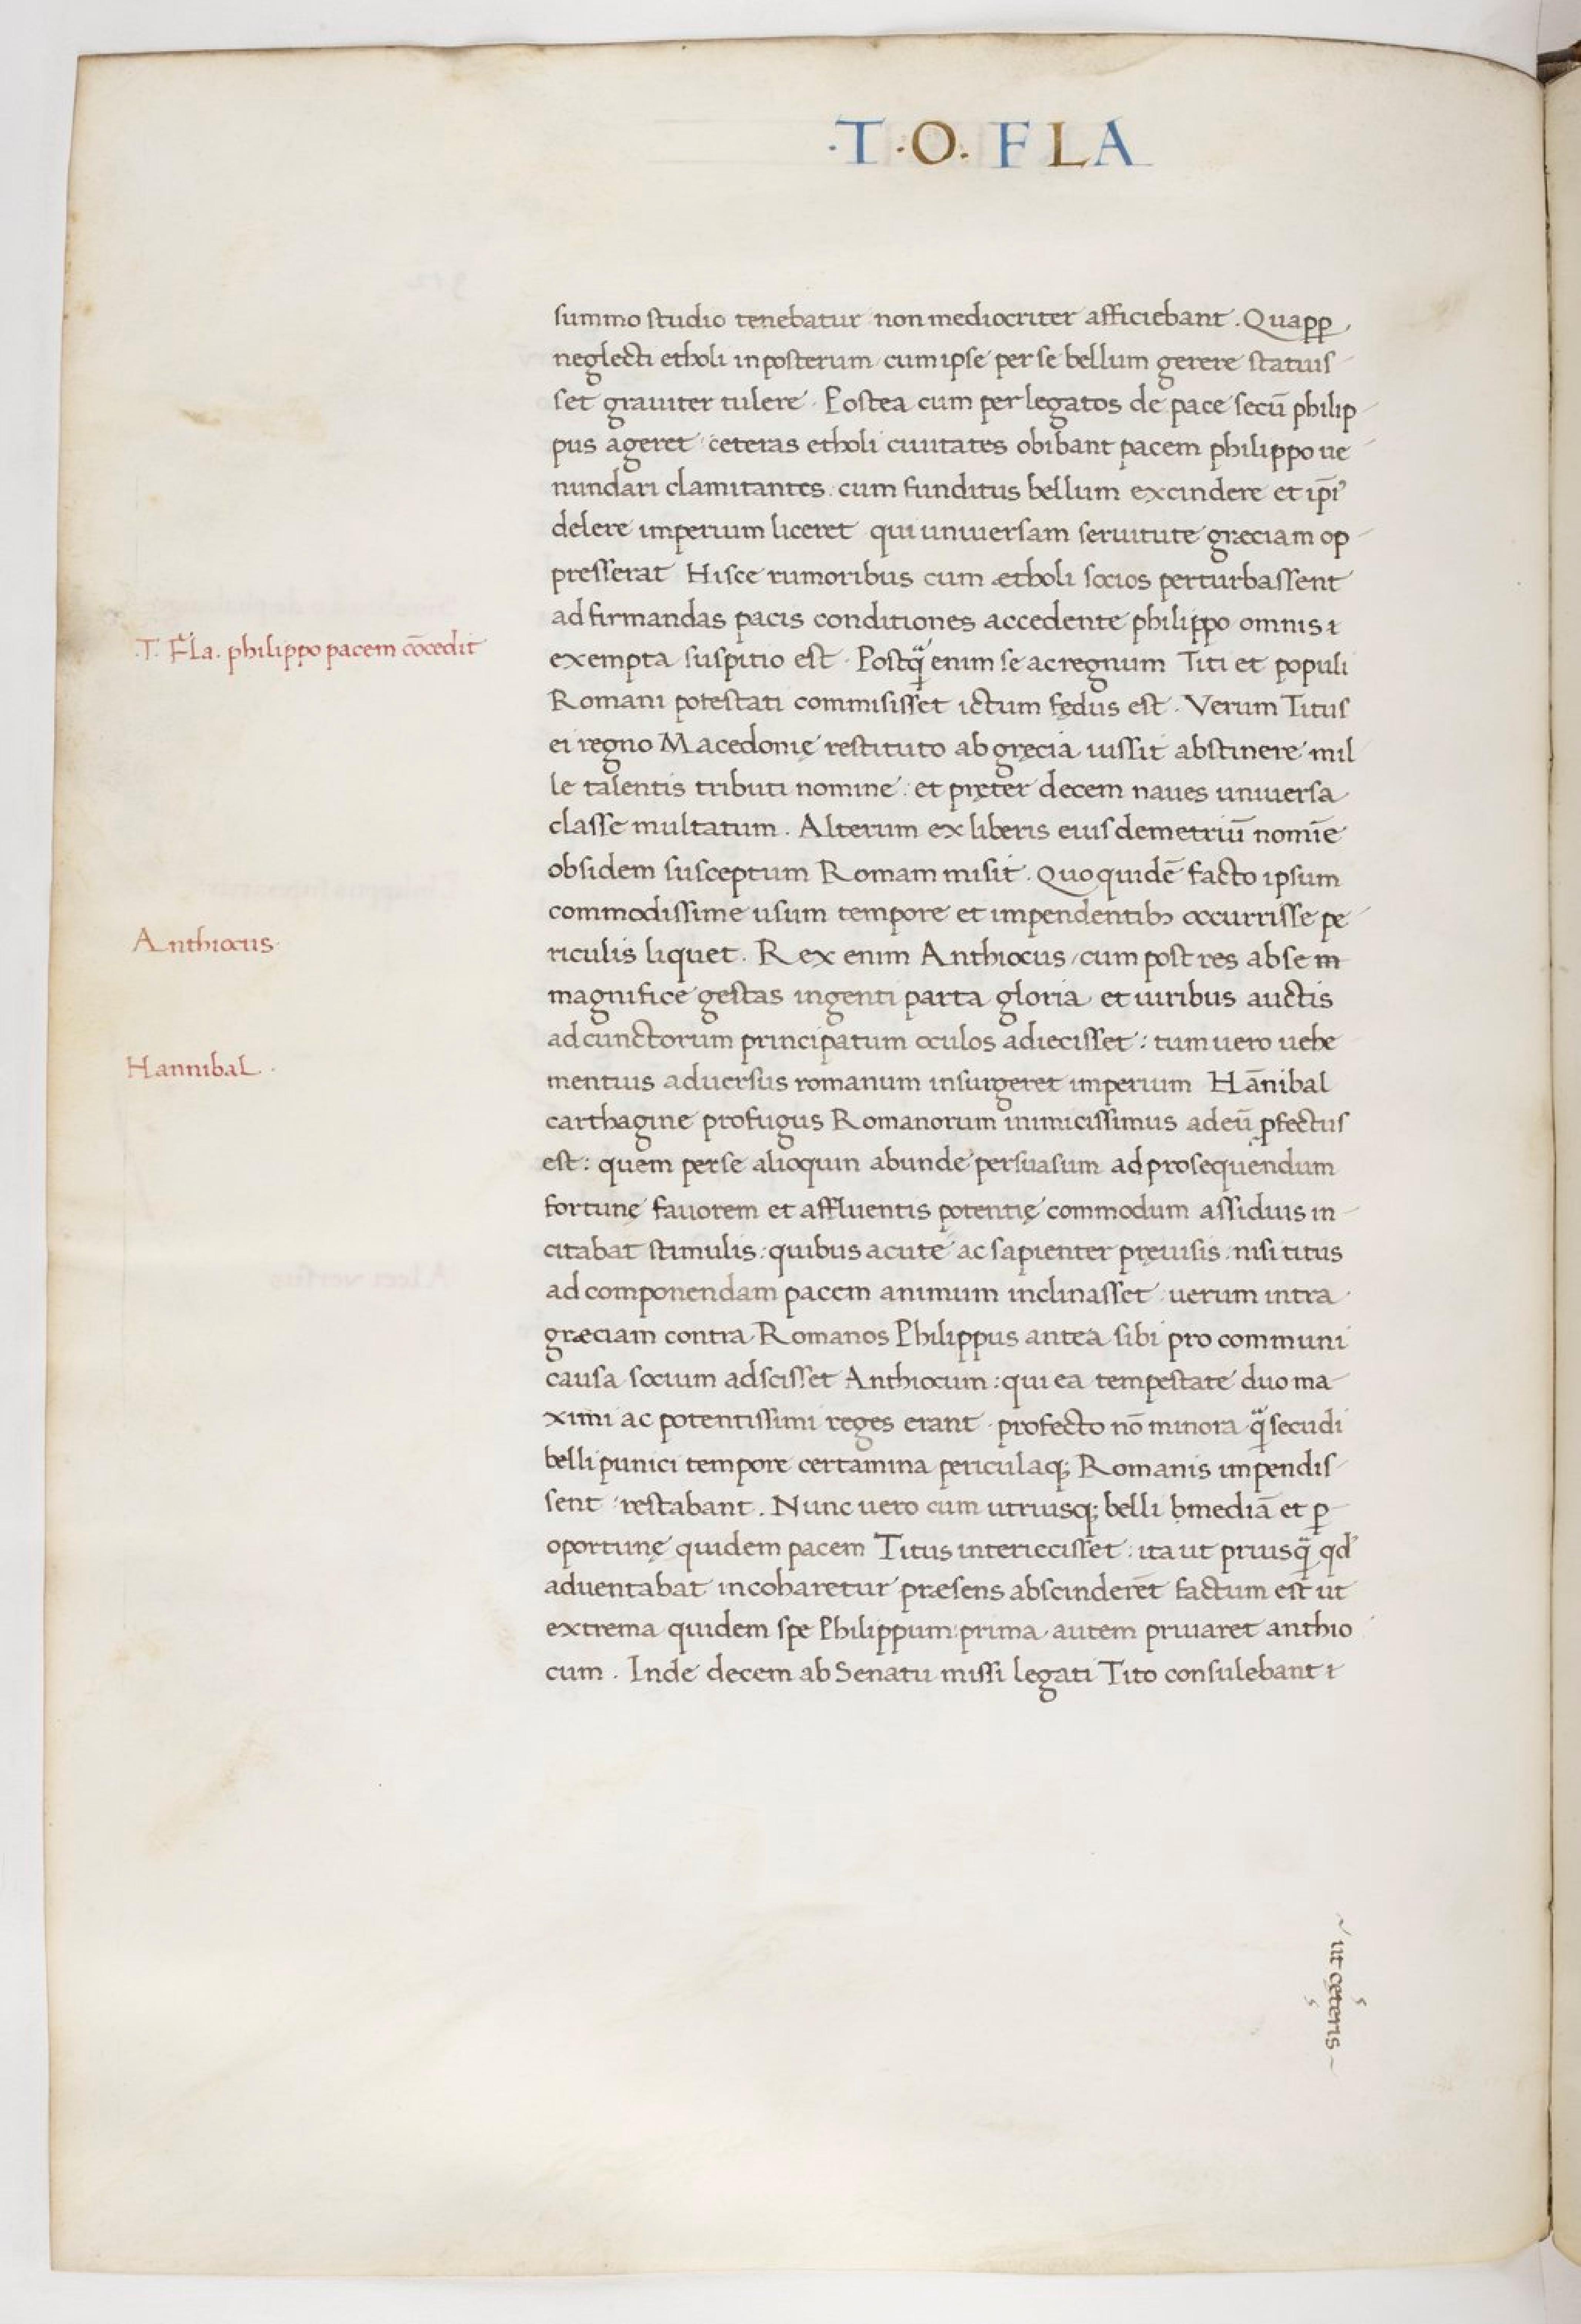 ·T·O· FLA
summo studio tenebatur non mediocriter afficiebant. Quapp̱
neglecti etholi in posterum cum ipse per se bellum gerere statuis
set grauiter tulere. Postea cum per legatos de pace secū philip
pus ageret ceteras etholi ciuitates obibant pacem philippo ue
nundari clamitantes. cum funditus bellum excindere et ip̄i
delere imperium liceret qui uniuersam seruitute græciam op
presserat Hisce rumoribus cum ætholi socios perturbassent
ad firmandas pacis conditiones accedente philippo omnis
T. Fla. philippo pacem cōcedit
exempta suspitio est. Postꝗ̃ enim se ac regnum Titi et populi
Romani potestati commisisset ictum fędus est. Verum Titus
ei regno Macedonię restituto ab gręcia iussit abstinere mil
le talentis tributi nomine: et pręter decem naues uniuersa
classe multatum. Alterum ex liberis eius demetriū nomīe
obsidem susceptum Romam misit. Quo quidē facto ipsum
commodissime usum tempore et impendentibꝫ occurrisse pe
Anthiocus
riculis liquet. Rex enim Anthiocus, cum post res ab se
magnifice gestas ingenti parta gloria et uiribus auctis
ad cunctorum principatum oculos adiecisset: tum uero uehe
Hannibal.
mentius aduersus romanum insurgeret imperium Hānibal
carthagine profugus Romanorum inimicissimus ad eū ꝓfectus
est: quem per se alioquin abunde persuasum ad prosequendum
fortunę fauorem et affluentis potentię commodum assiduis in
citabat stimulis: quibus acute ac sapienter pręuisis. nisi titus
ad componendam pacem animum inclinasset uerum intra
græciam contra Romanos Philippus antea sibi pro communi
causa socium adscisset Anthiocum: qui ea tempestate duo ma
ximi ac potentissimi reges erant. profecto nō minora ꝗ̃ secudi
belli punici tempore certamina periculaq; Romanis impendis
sent restabant. Nunc uero cum utriusq; belli ḥmediā et ꝑ
oportunę quidem pacem Titus interiecisset: ita ut priusꝗ̃ qd'
aduentabat incoharetur præsens abscinderet factum est ut
extrema quidem spe Philippum: prima autem priuaret anthio
cum. Inde decem ab Senatu missi legati Tito consulebant
ut cęteris